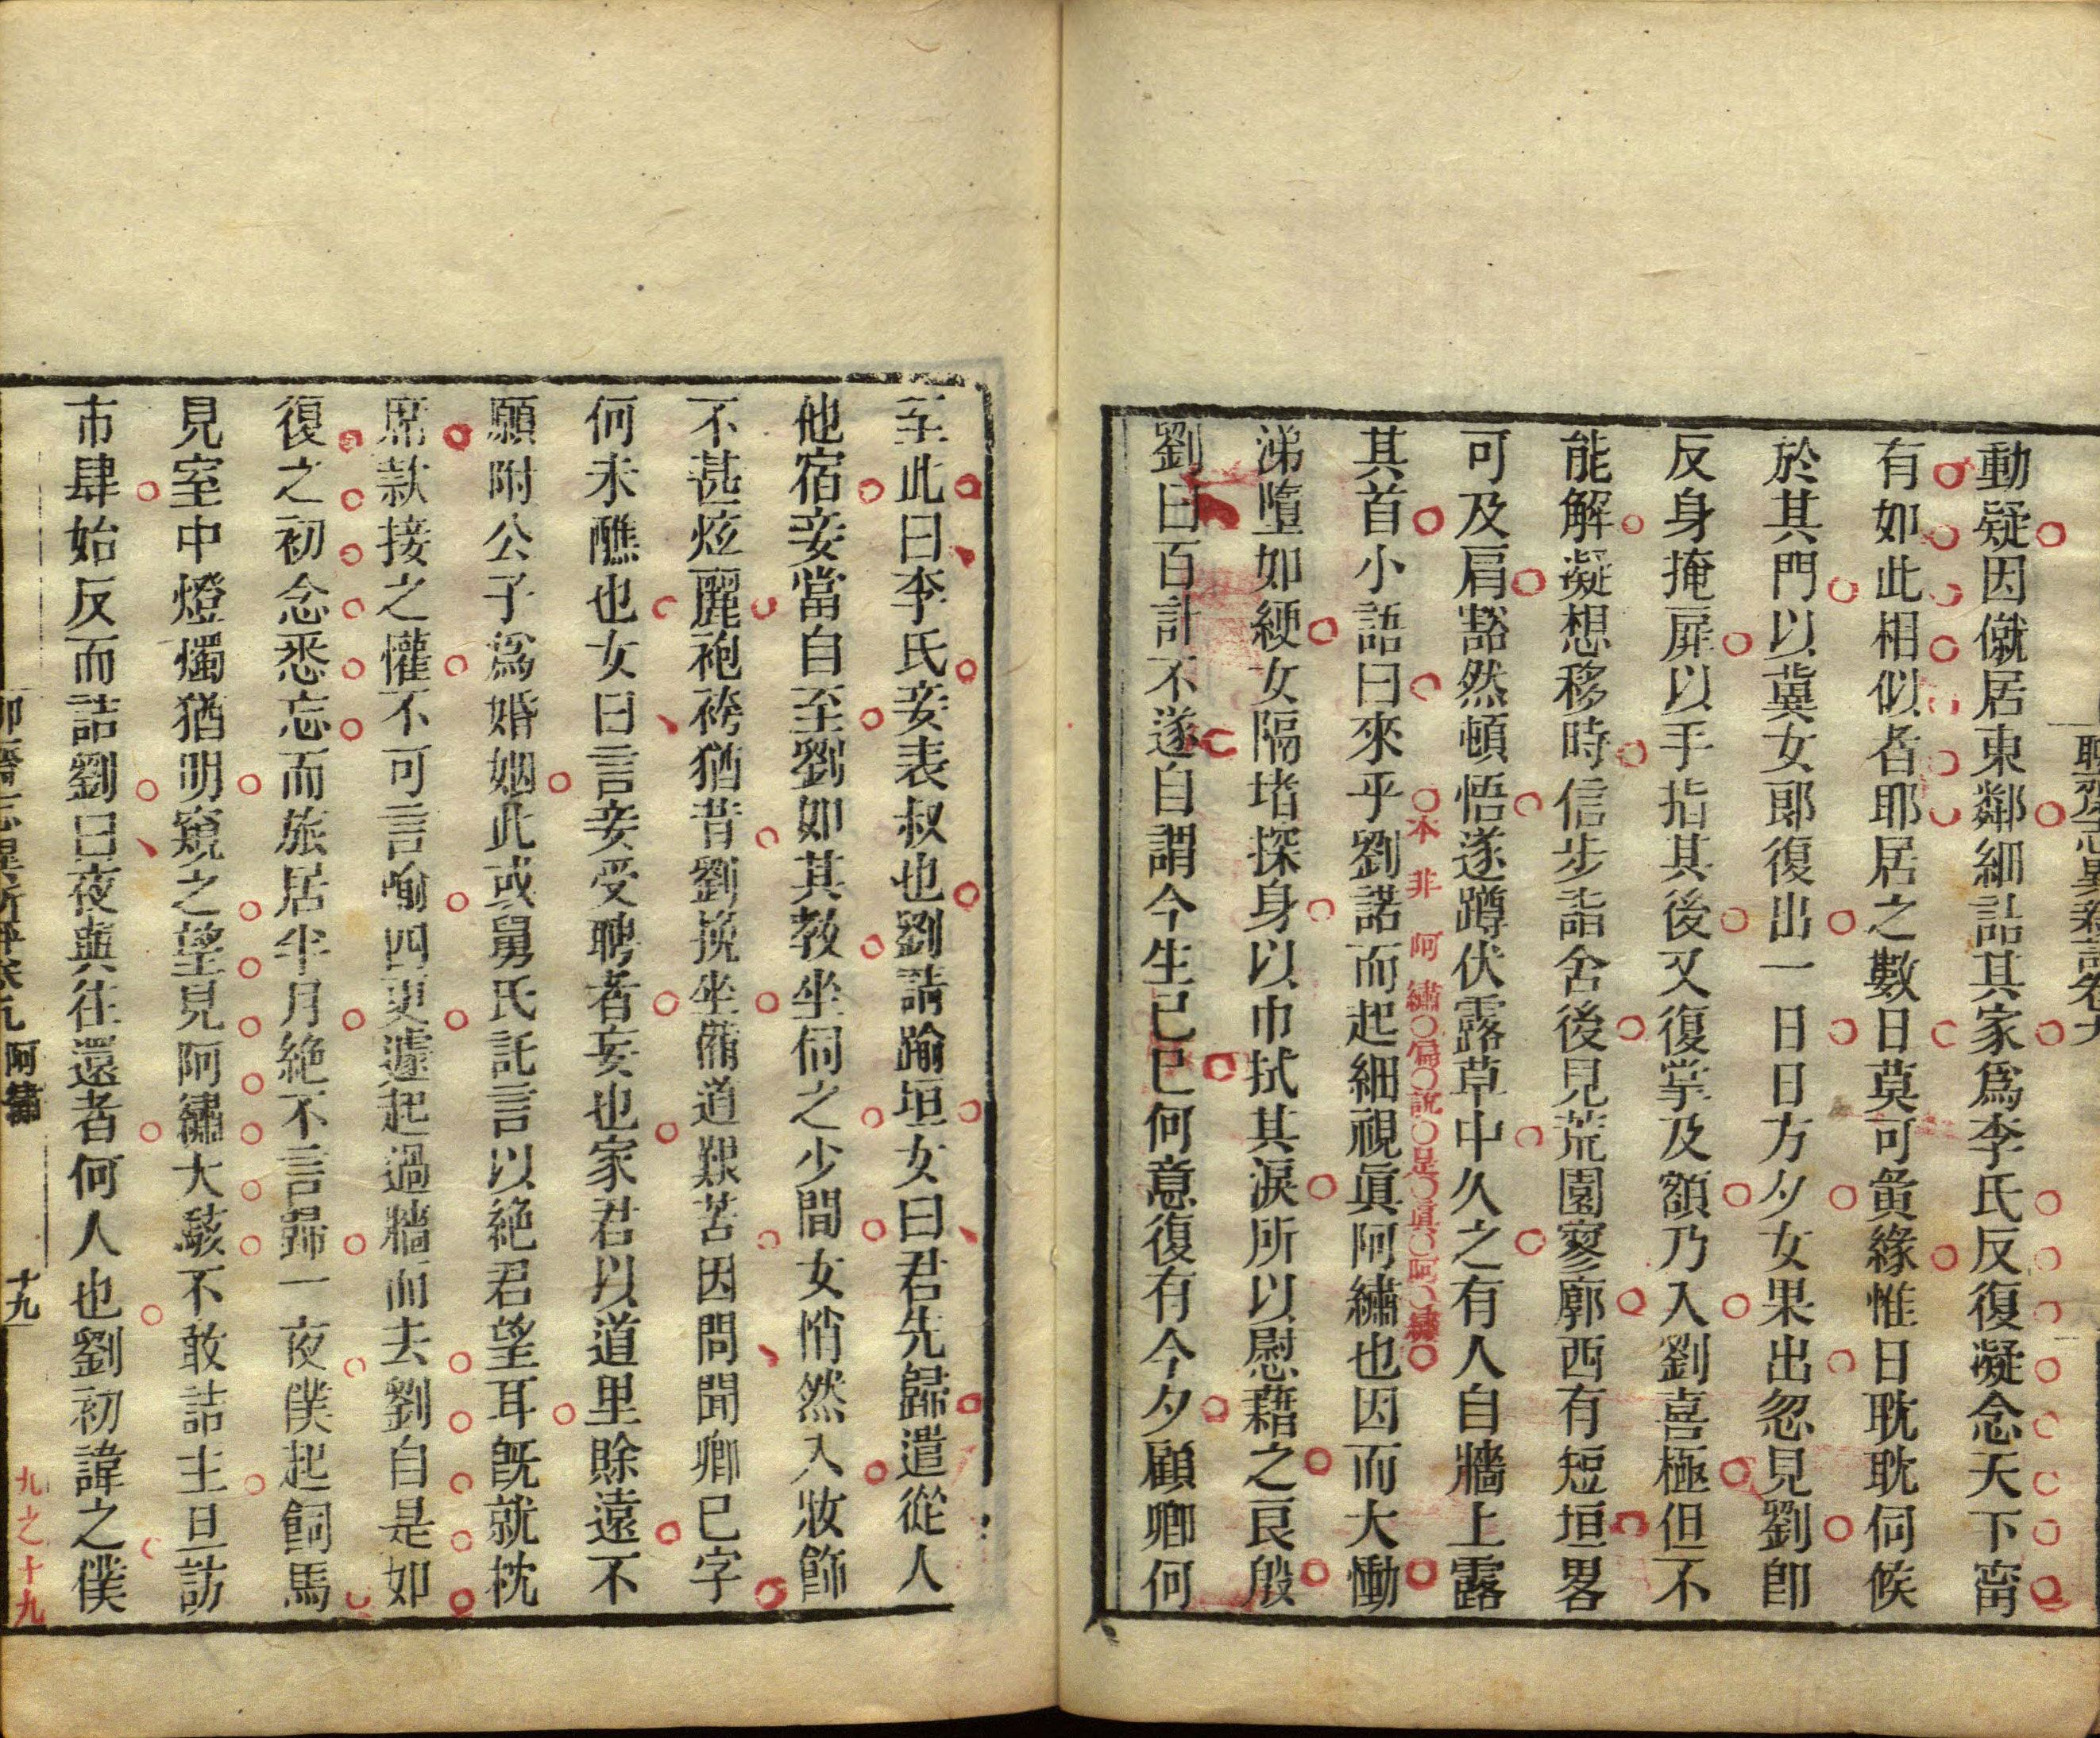 動疑因僦居東鄰細詰其家爲李氏反復凝念天下甯
有如此相似者耶居之數日莫可夤緣惟日眈眈伺候
於其門以冀女郎復出一日日方夕女果出忽見劉卽
反身掩扉以手指其後又復掌及額乃入劉喜極但不
能解凝想移時信步詣舍後見荒園寥廓西有短垣畧
可及肩豁然頓悟遂蹲伏露草中久之有人自牆上露
其首小語曰來乎劉諾而起細視眞阿繡也因而大慟
本非阿繡偏說是眞阿繡
涕墮如綆女隔堵探身以巾拭其淚所以慰藉之良殷
劉曰百計不遂自謂今生已已何意復有今夕顧卿何
至此曰李氏妾表叔也劉請踰垣女曰君先歸遣從人
他宿妾當自至劉如其教坐伺之少間女悄然入妝飾
不甚炫麗袍袴猶昔劉挽坐備道艱苦因問聞卿已字
何未醮也女曰言妾受聘者妄也家君以道里賒遠不
願附公子爲婚姻此或舅氏託言以絕君望耳旣就枕
席款接之懽不可言喻四更遽起過牆而去劉自是如
復之初念悉忘而旅居半月絕不言歸一夜僕起飼馬
見室中燈燭猶明窺之望見阿繡大駭不敢詰主旦訪
市肆始反而詰劉曰夜與往還者何人也劉初諱之僕
阿繡
十九
九之十九